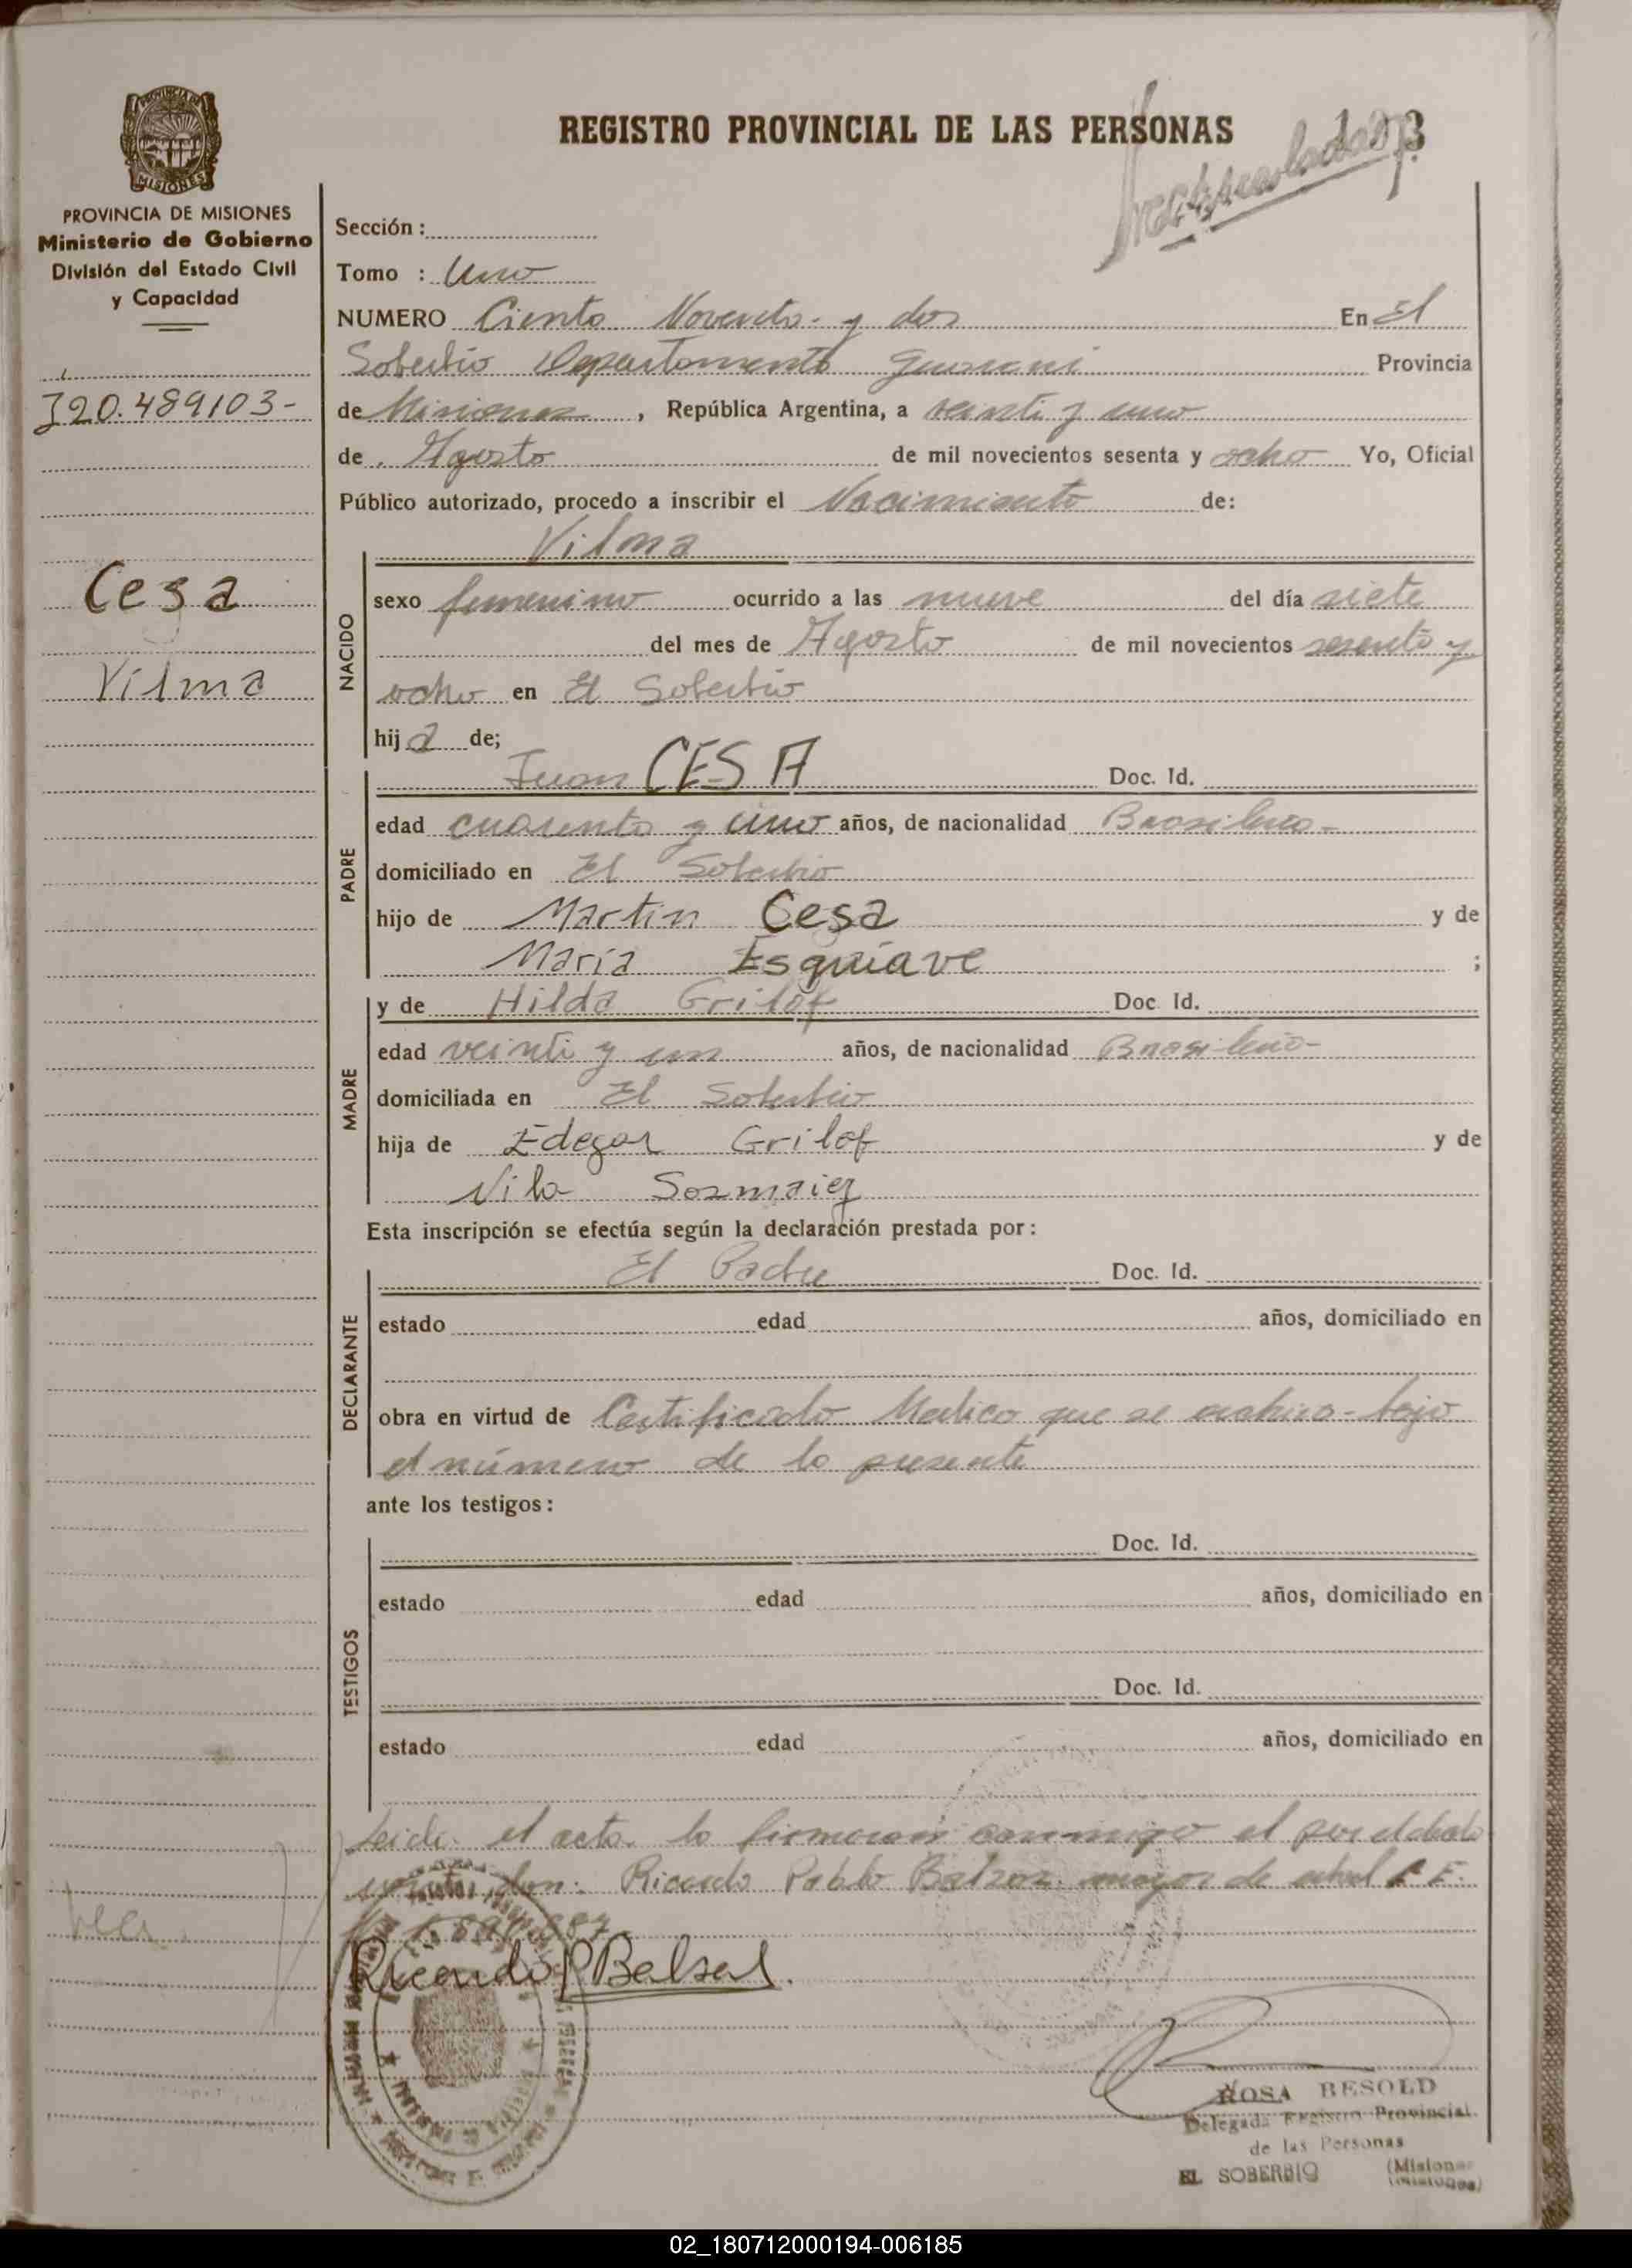 REGISTRO PROVINCIAL DE LAS PERSONAS
PROVINCIA DE
MISIONES
PROVINCIA DE MISIONES
Ministerio de Gobierno
División del Estado Civil
y Capacidad
J20.489103-
Cesa
Vilma
Sección :
Tomo : Uno
NUMERO Ciento Noventa y dos En El
Soberbio Departamento Guarani Provincia
de Misiones , República Argentina, a veinti y uno
de Agosto de mil novecientos sesenta y ocho Yo, Oficial
Público autorizado, procedo a inscribir el Nacimiento de:
NACIDO
Vilma
sexo femenino ocurrido a las nueve del día siete
del mes de Agosto de mil novecientos sesenta y
ocho en El Soberbio
hija de;
PADRE
Juan CESA Doc. Id.
edad cuarenta y cinco años, de nacionalidad Brasilera-
domiciliado en El Soberbio
hijo de Martin Cesa y de
Maria Esquiave ;
MADRE
y de Hilda Grilof Doc. Id.
edad veinti y un años, de nacionalidad Brasilera-
domiciliada en El Soberbio
hija de Edegar Grilof y de
Nila Sozmaier
Esta inscripción se efectúa según la declaración prestada por:
DECLARANTE
El Padre Doc. Id.
estado edad años, domiciliado en
obra en virtud de Certificado Medico que se archiva-bajo
el número de la presente
ante los testigos:
TESTIGOS
Doc. Id.
estado edad años, domiciliado en
Doc. Id.
estado edad años, domiciliado en
Leida el acta la firmaran conmigo el
don: Ricardo Pablo Balzar mayor de edad
Ricardo P Balsar.
ROSA BESOLD
Delegada Registro Provincial
de las Personas
EL SOBERBIO (Misiones)
02_180712000194-006185